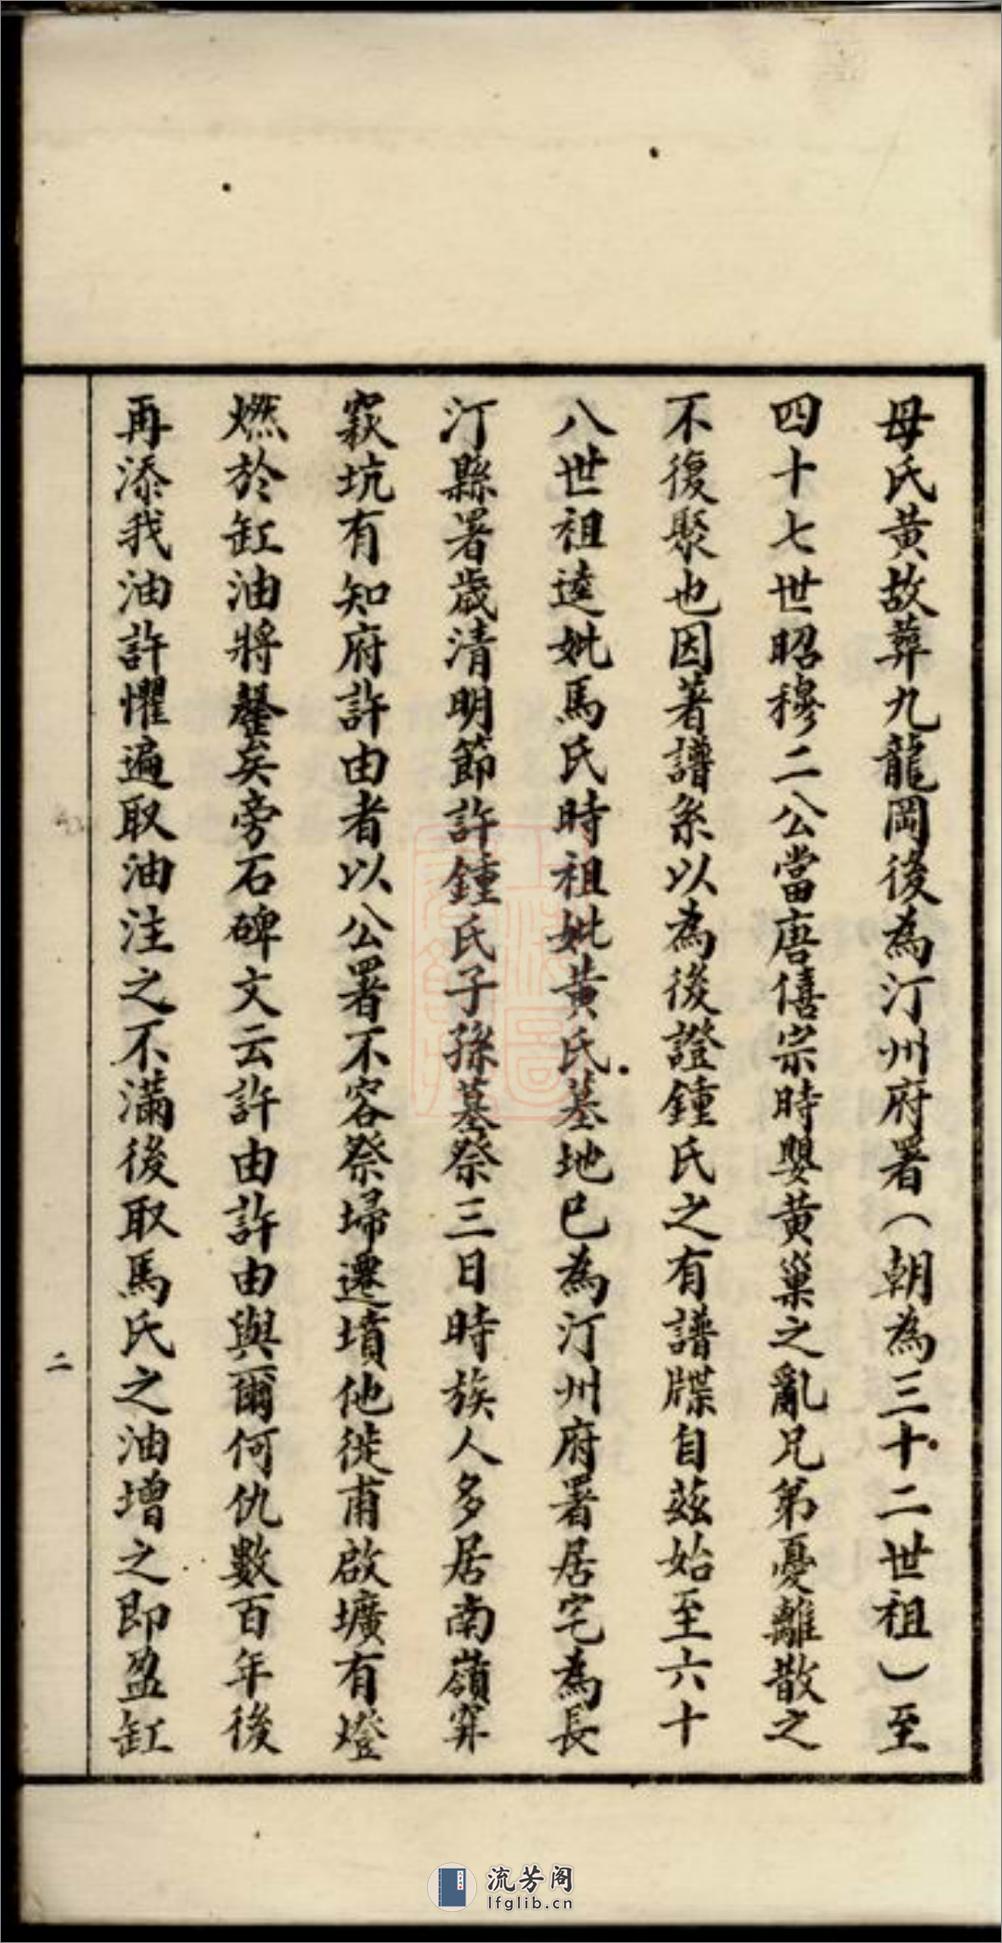 母氏黃故葬九龍岡後為汀州府署（朝為三十二世祖）至
四十七世昭穆二公當唐僖宗時嬰黃巢之亂兄弟憂離散之
不復聚也因著譜系以為後證鍾氏之有譜牒自茲始至六十
八世祖逵妣馬氏時祖妣黃氏墓地已為汀州府署居宅為長
汀縣署歲清明節許鍾氏子孫墓祭三日時族人多居南嶺窂
窾坑有知府許由者以公署不容祭埽遷墳他徙甫啟壙有燈
燃於缸油將罄矣旁石碑文云許由許由與爾何仇數百年後
再添我油許懼遍取油注之不滿後取馬氏之油增之即盈缸
二
流芳阁
lfglib.cn